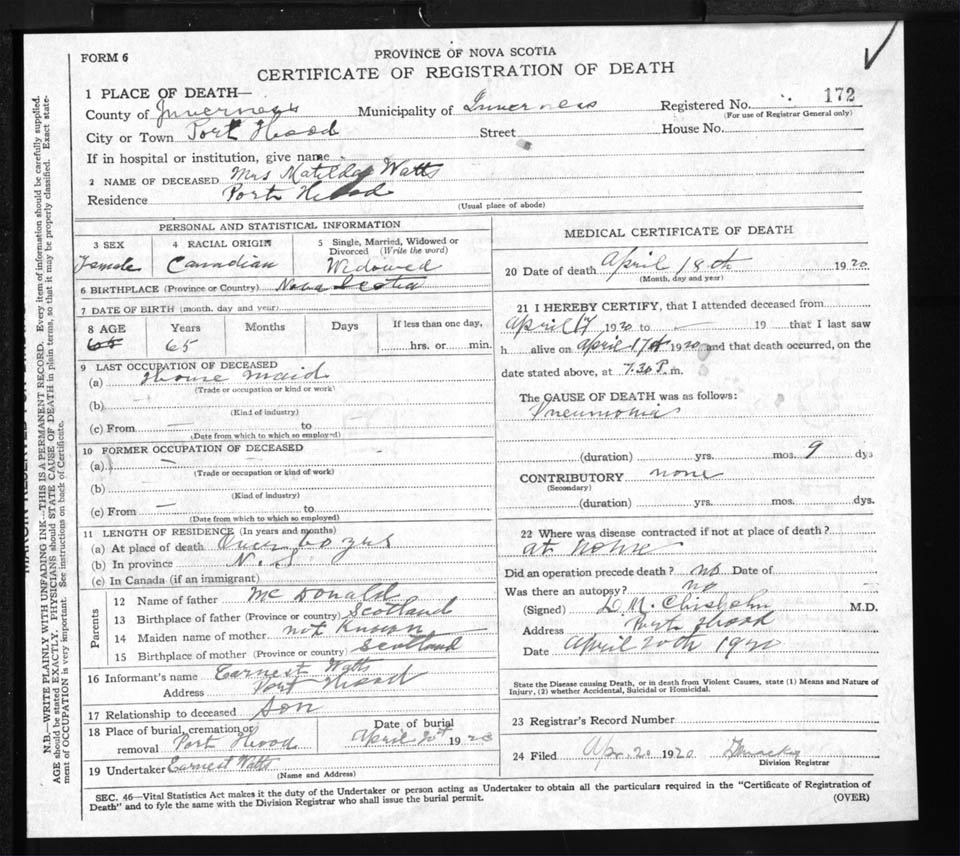 FORM 6
PROVINCE OF NOVA SCOTIA
CERTIFICATE OF REGISTRATION OF DEATH
1 PLACE OF DEATH—
County of Inverness Municipality of Inverness Registered No. 172
(For use of Registrar General only)
City or Town Port Hood Street House No.
If in hospital or institution, give name
2 NAME OF DECEASED Mrs Matilda Watts
Residence Port Hood
(Usual place of abode)
PERSONAL AND STATISTICAL INFORMATION
3 SEX 4 RACIAL ORIGIN 5 Single, Married, Widowed or Divorced (Write the word)
Female Canadian Widowed
6 BIRTHPLACE (Province or Country) Nova Scotia
7 DATE OF BIRTH (month, day and year)
8 AGE Years Months Days If less than one day,
65 65 hrs. or min.
9 LAST OCCUPATION OF DECEASED
(a) House maid
(Trade or occupation or kind or work)
(b) —
(Kind of industry)
(c) From — to
(Date from which to which so employed)
10 FORMER OCCUPATION OF DECEASED
(a) —
(Trade or occupation or kind of work)
(b)
(Kind of industry)
(c) From — to
(Date from which to which so employed)
11 LENGTH OF RESIDENCE (In years and months)
(a) At place of death Over
(b) In province N. S
(c) In Canada (if an immigrant)
Parents
12 Name of father Mc Donald
13 Birthplace of father (Province or country) Scotland
14 Maiden name of mother not Known
15 Birthplace of mother (Province or country) Scotland
16 Informant's name Earnest Watts
Address Port Hood
17 Relationship to deceased Son
18 Place of burial, cremation or removal Port Hood
Date of burial April 20th 1920
19 Undertaker Earnest Watts
(Name and Address)
MEDICAL CERTIFICATE OF DEATH
20 Date of death April 18th 1920
(Month, day and year)
21 I HEREBY CERTIFY, that I attended deceased from
April 17 1920 to — 19 that I last saw
h alive on April 17th 1920 and that death occurred, on the
date stated above, at 7.30 P. m.
The CAUSE OF DEATH was as follows:
Pneumonia
(duration) yrs. mos. 9 dys
CONTRIBUTORY none
(Secondary)
(duration) yrs. mos. dys.
22 Where was disease contracted if not at place of death?
at home
Did an operation precede death? no Date of
Was there an autopsy? no
(Signed) D. M. Chisholm M.D.
Address Port Hood
Date April 20th 1920
State the Disease causing Death, or in death from Violent Causes, state (1) Means and Nature of
Injury, (2) whether Accidental, Suicidal or Homicidal.
23 Registrar's Record Number
24 Filed Apr. 20 1920
Division Registrar
SEC. 46—Vital Statistics Act makes it the duty of the Undertaker or person acting as Undertaker to obtain all the particulars required in the "Certificate of Registration of
Death" and to fyle the same with the Division Registrar who shall issue the burial permit.
(OVER)
N.B.—WRITE PLAINLY WITH UNFADING INK—THIS IS A PERMANENT RECORD. Every item of information should be carefully supplied.
AGE should be stated EXACTLY. PHYSICIANS should STATE CAUSE OF DEATH in plain terms, so that it may be properly classified. Exact state-
ment of OCCUPATION is very important. See instructions on back of Certificate.